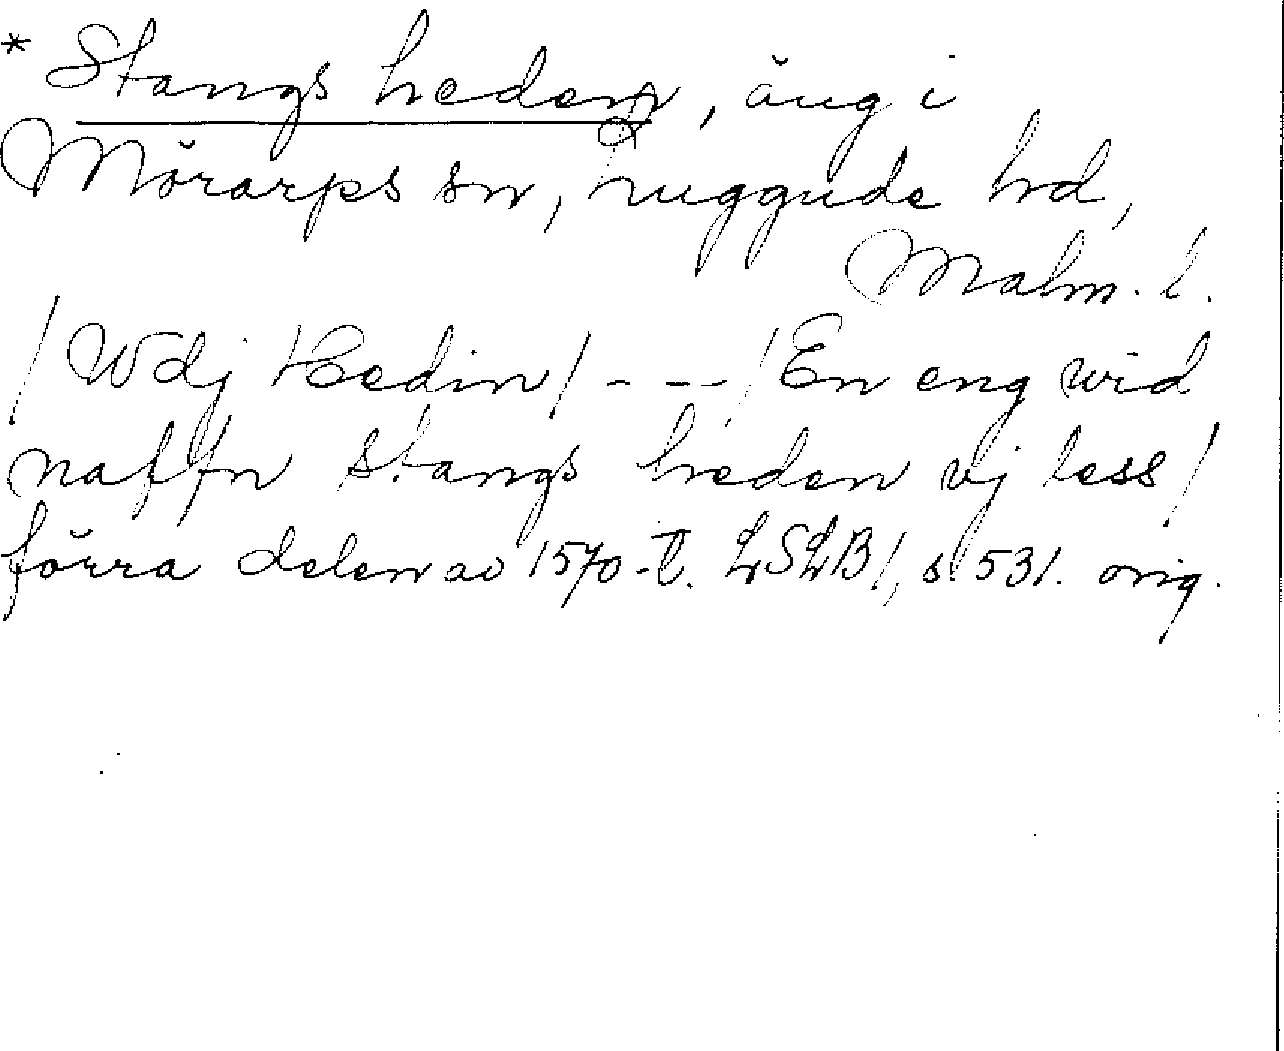 * Stangs heden, äng i
Mörarps sn, Luggude hd,
Malm. l.
/Wdj Hedin/ - - - /En eng wid
naffn stangs heden vj less/
förra delen av 1570-t. LSLB/, s 531. orig.